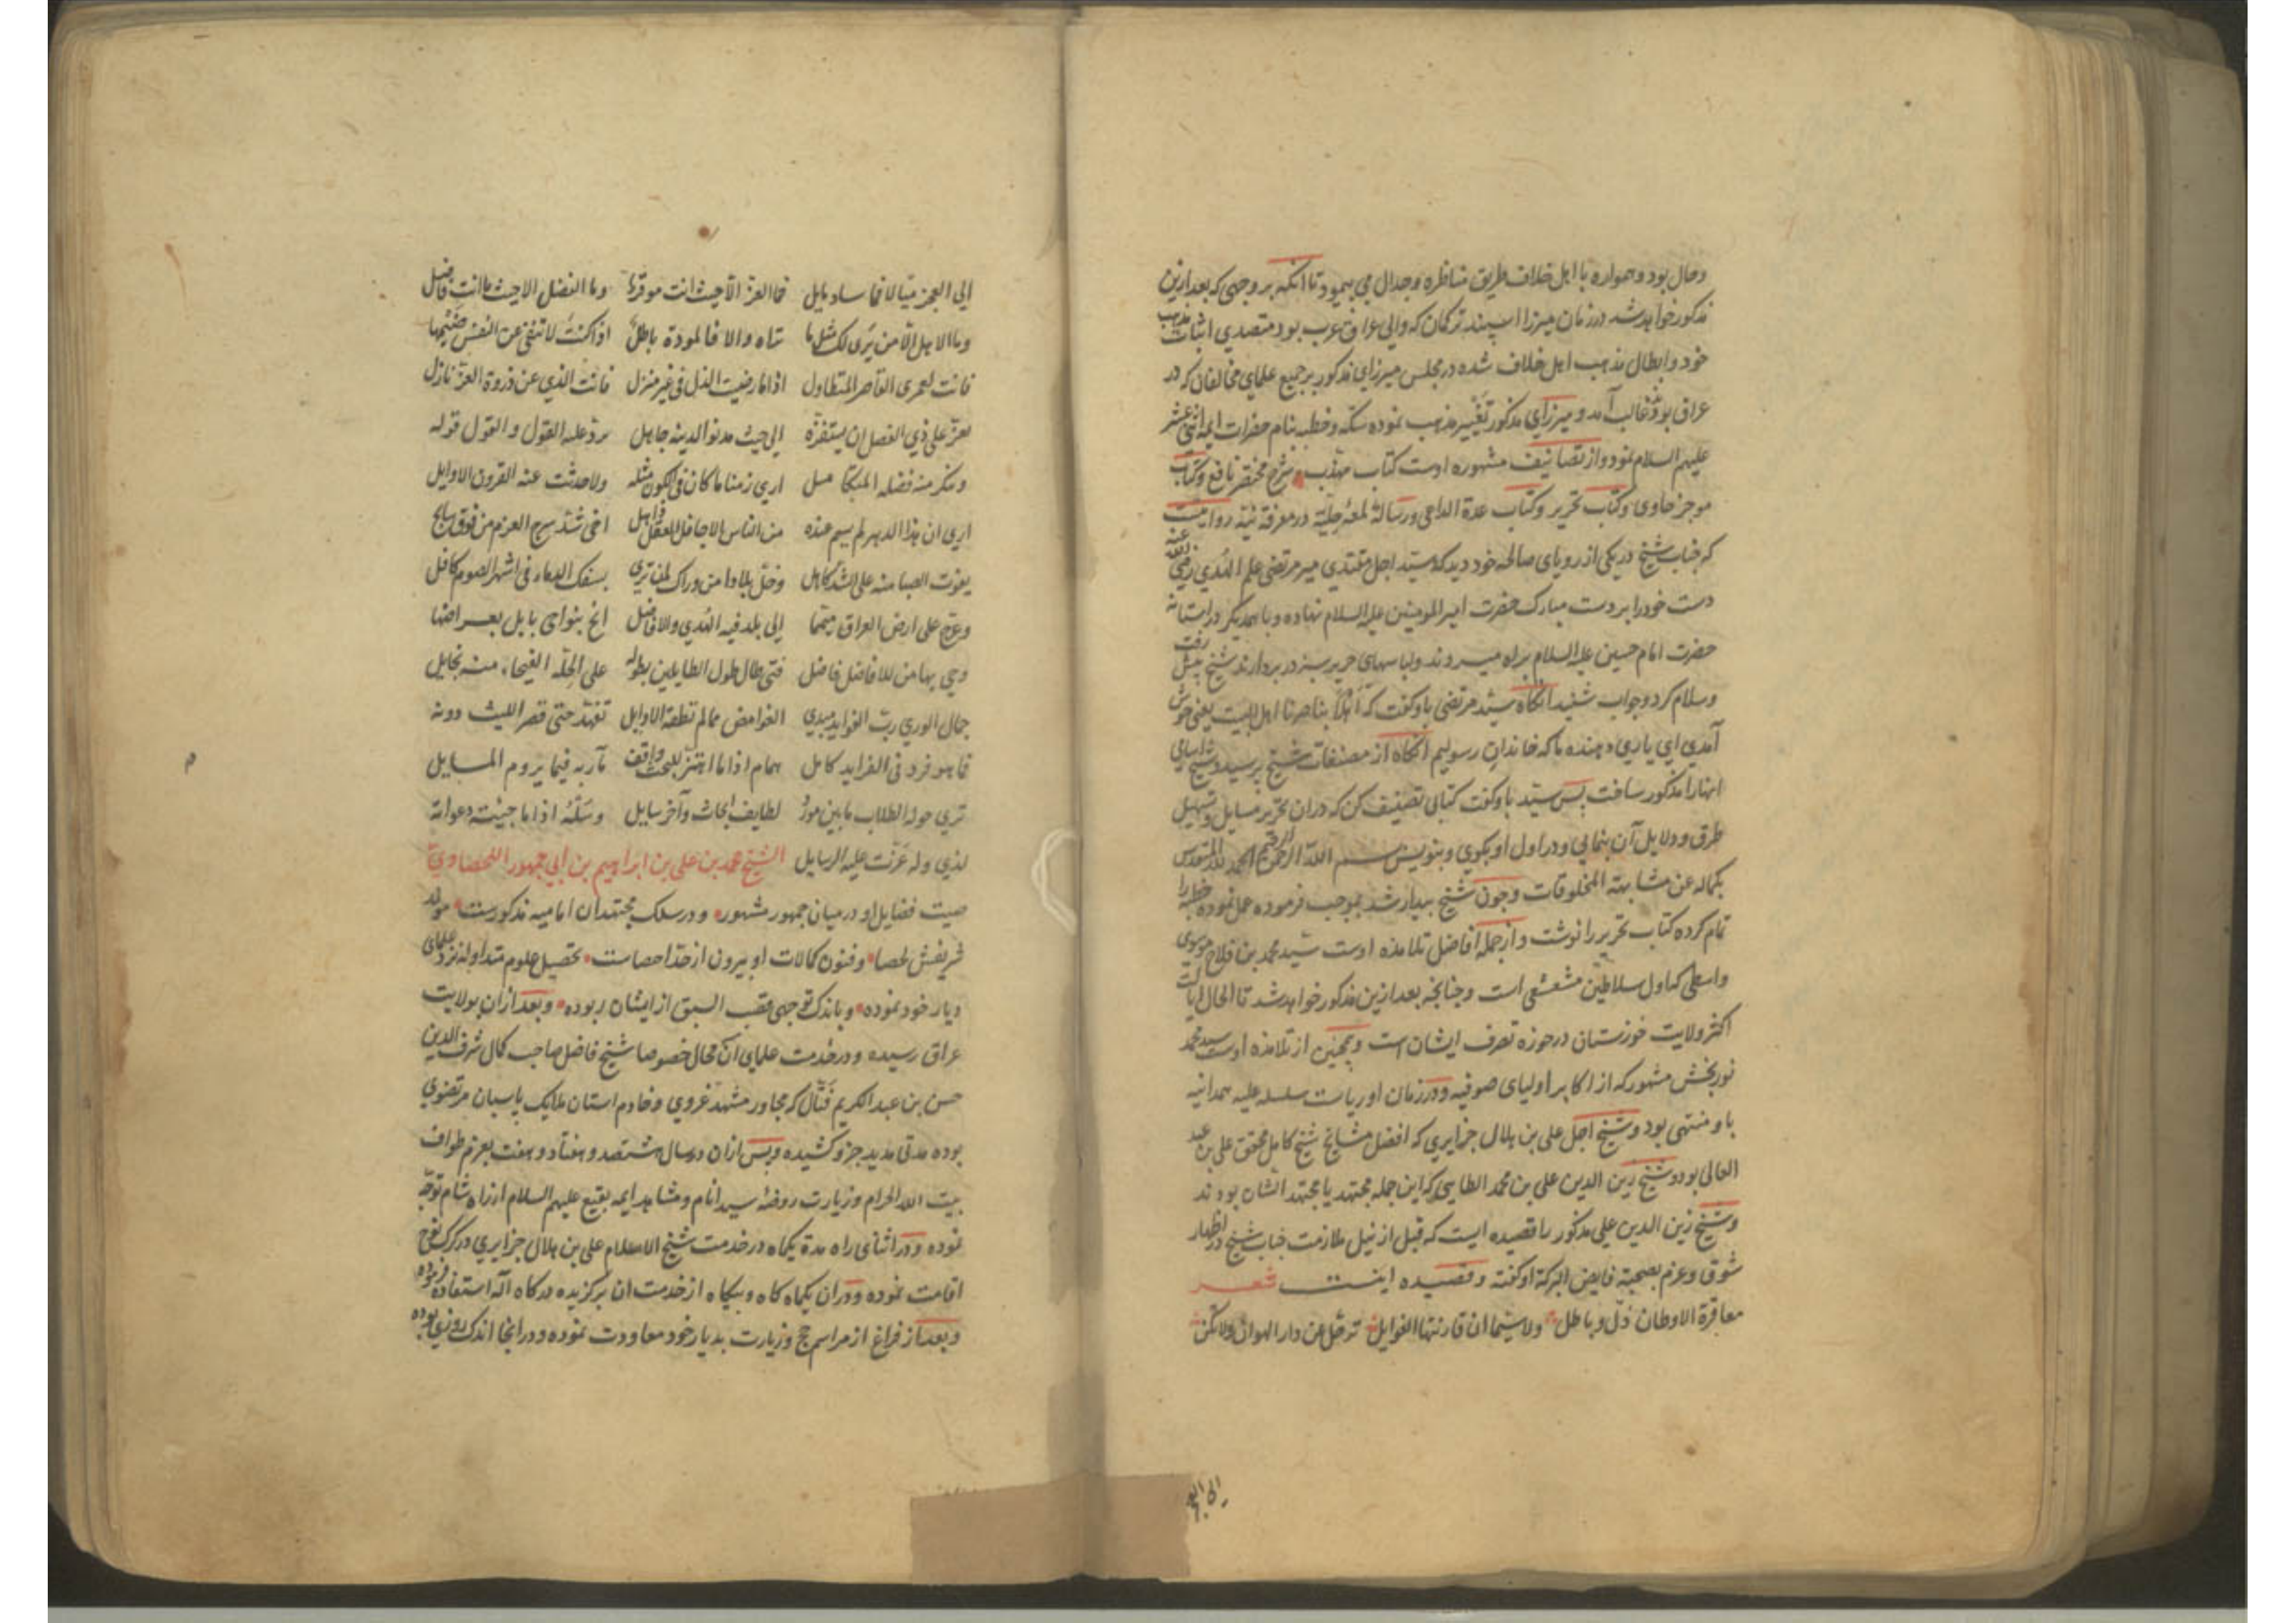 وحال بود و همواره با اهل خلاف طریق مناظره و جدال می پیمود تا آنکه بر وجهی که بعد ازین
مذکور خواهد شد در زمان میرزا اسپند ترکمان که والی عراق عرب بود متصدی اثبات مذهب
خود و ابطال مذهب اهل خلاف شده در مجلس میرزای مذکور بر جمیع علمای مخالفان که در
عراق بودند غالب آمد و میرزای مذکور تغییر مذهب نموده سکه و خطبه بنام حضرات ایمه اثنی عشر
علیهم السلام نمود و از تصانیف مشهوره اوست کتاب مهذب شرح مختصر نافع و کتاب
موجز حاوی و کتاب تحریر و کتاب عدة الداعی و رسالهٔ لمعهٔ جلیّه در معرفة نیّة روایتست
که جناب شیخ در یکی از رویای صالحه خود دید که سید اجل مقتدی میر مرتضی علم الهدی رضی الله عنه
دست خود را بر دست مبارک حضرت امیر المومنین علیه السلام نهاده و با همدیگر در استانه
حضرت امام حسین علیه السلام براه میروند و لباسهای حریر سبز در بر دارند شیخ پیش رفت
و سلام کرد و جواب شنید انگاه سید مرتضی باو گفت که اهلا بناصرنا اهل البیت یعنی خوش
آمدی ای یاری دهنده ما که خاندان رسولیم انگاه از مصنفات شیخ پرسید و شیخ اسامی
انها را مذکور ساخت پس سید باو گفت کتابی تصنیف کن که در ان تحریر مسایل و تسهیل
طرق و دلایل آن بنمایی و در اول او بگوی و بنویس بسم الله الرحمن الرحیم الحمد لله المتقدس
بکماله عن مشابهة المخلوقات و چون شیخ بیدار شد بموجب فرموده عمل نموده خطبه را
تمام کرده کتاب تحریر را نوشت و از جمله افاضل تلامذه اوست سید محمد بن فلاح موسوی
واسطی که اول سلاطین مشعشعی است و چنانچه بعد ازین مذکور خواهد شد تا الحال ایالت
اکثر ولایت خوزستان در حوزه تصرف ایشان است و همچنین از تلامذه اوست سید محمد
نوربخش مشهور که از اکابر اولیای صوفیه و در زمان او ریاست سلسله علیه همدانیه
باو منتهی بود و شیخ اجل علی بن هلال جزایری که افضل مشایخ شیخ کامل محقق علی بن عبد
العالی بود و شیخ زین الدین علی بن محمد الطایی که این جمله مجتهد یا مجتهد انشان بودند
و شیخ زین الدین علی مذکور را قصیده ایست که قبل از نیل ملازمت جناب شیخ در اظهار
شوق و عزم بصحبة فایض البرکة او گفته و قصیده اینست شعر
معاقرة الاوطان ذل و باطل ولا سیما ان قارنتها الغوایل ترحل عن دار الهوان ولا تکن
الی العجز میالا فما ساد مایل فما العز الا حیث انت موقر وما الفضل الا حیث ما انت فاضل
وما الاهل الا من یری لک مثل ما تراه والا فالمودة باطل اذا کنت لا تنفی عن النفس ضیمها
فانت لعمری القاصر المتطاول اذا ما رضیت الذل فی غیر منزل فانت الذی عن ذروة العز نازل
یعز علی ذی الفضل ان یستفزه الی حیث مدنو الدینه جاهل یرد علیه القول و القول قوله
وینکر منه فضله المتکامل اری زمنا ما کان فی الکون مثله ولا حدثت عنه القرون الاوایل
اری ان هذا الدهر لم یسم عنده من الناس الا جاهل للعقل ذاهل اخی شد سرج العزم من فوق سابح
یفوت الصبا منه علی الشد کاهل وخل بلادا من وراک لمن تری بسفک الدماء فی اشهر الصوم کافل
وعج علی ارض العراق میمما الی بلد فیه الهدی والافاضل انخ بنواحی بابل بعراضها
وحی بها من للافاضل فاضل فتی طال طول الطایلین بطوله علی الحلة الفیحاء منه نجایل
جمال الوری رب الفواید مبدی الغوامض مما لم تطقه الاوایل تفهد حتی قصر اللیث دونه
فما هو فرد فی الفراید کامل همام اذا ما اهتز للبحث واقف مآربه فیما یروم المسایل
تری حوله الطلاب ما بین مورد لطایف ابحاث وآخر سایل وسله اذا ما جیته دعواته
لذی وله عزت علیه الرسایل الشیخ محمد بن علی بن ابراهیم بن ابی جمهور اللحصاوی
صیت فضایل او در میان جمهور مشهور و در سلک مجتهدان امامیه مذکورست مولد
شریفش لحصا و فنون کمالات او بیرون از حد احصاست تحصیل علوم متداوله نزد علمای
دیار خود نموده و باندک توجهی قصب السبق از ایشان ربوده و بعد از ان بولایت
عراق رسیده و در خدمت علمای آن محال خصوصا شیخ فاضل صاحب کمال شرف الدین
حسن بن عبد الکریم فتال که مجاور مشهد غروی و خادم استان ملایک پاسبان مرتضوی
بوده مدتی مدید جزو کشیده و پس از ان در سال هشتصد و هفتاد و هفت بعزم طواف
بیت الله الحرام و زیارت روضهٔ سید انام و مشاهد ایمه بقیع علیهم السلام از راه شام توجه
نموده و در اثنای راه مدة یکماه در خدمت شیخ الاسلام علی بن هلال جزایری در کرک نوح
اقامت نموده و در ان یکماه گاه و بیگاه از خدمت ان برگزیده درگاه اله استفاده فرموده
و بعد از فراغ از مراسم حج و زیارت بدیار خود معاودت نموده و در انجا اندک روزی بوده
الی العجز